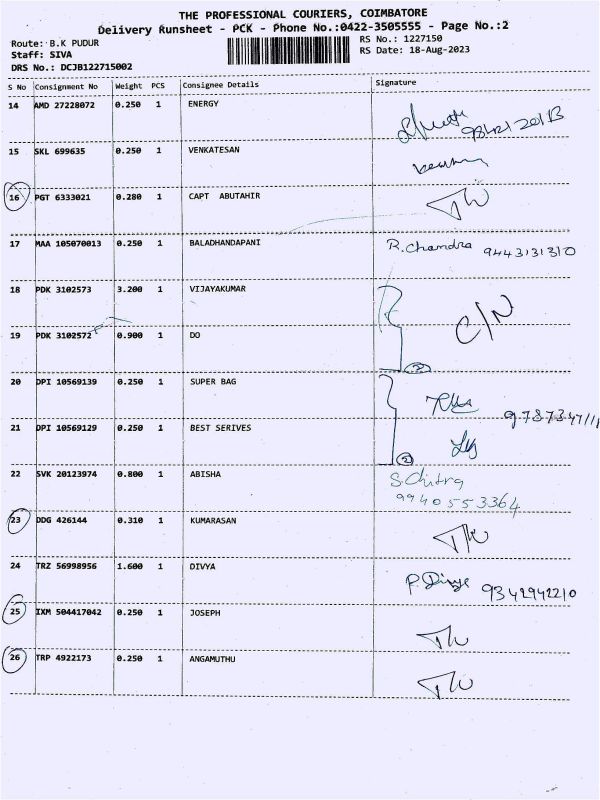 THE PROFESSIONAL COURIERS, COIMBATORE
Delivery Runsheet - PCK - Phone No.:0422-3505555 - Page No.:2
Route: B.K PUDUR RS No.: 1227150
Staff: SIVA RS Date: 18-Aug-2023
DRS No.: DCJB122715002
S No Consignment No Weight PCS Consignee Details Signature
14 AMD 27228072 0.250 1 ENERGY
15 SKL 699635 0.250 1 VENKATESAN
16 PGT 6333021 0.280 1 CAPT ABUTAHIR
17 MAA 105070013 0.250 1 BALADHANDAPANI R. Chandra 9443131310
18 PDK 3102573 3.200 1 VIJAYAKUMAR
C/N
19 PDK 3102572 0.900 1 DO
2
20 DPI 10569139 0.250 1 SUPER BAG
21 DPI 10569129 0.250 1 BEST SERIVES
2
22 SVK 20123974 0.800 1 ABISHA S. Chitra
9940553364
23 DDG 426144 0.310 1 KUMARASAN
24 TRZ 56998956 1.600 1 DIVYA P. Divya 9342942210
25 IXM 504417042 0.250 1 JOSEPH
26 TRP 4922173 0.250 1 ANGAMUTHU